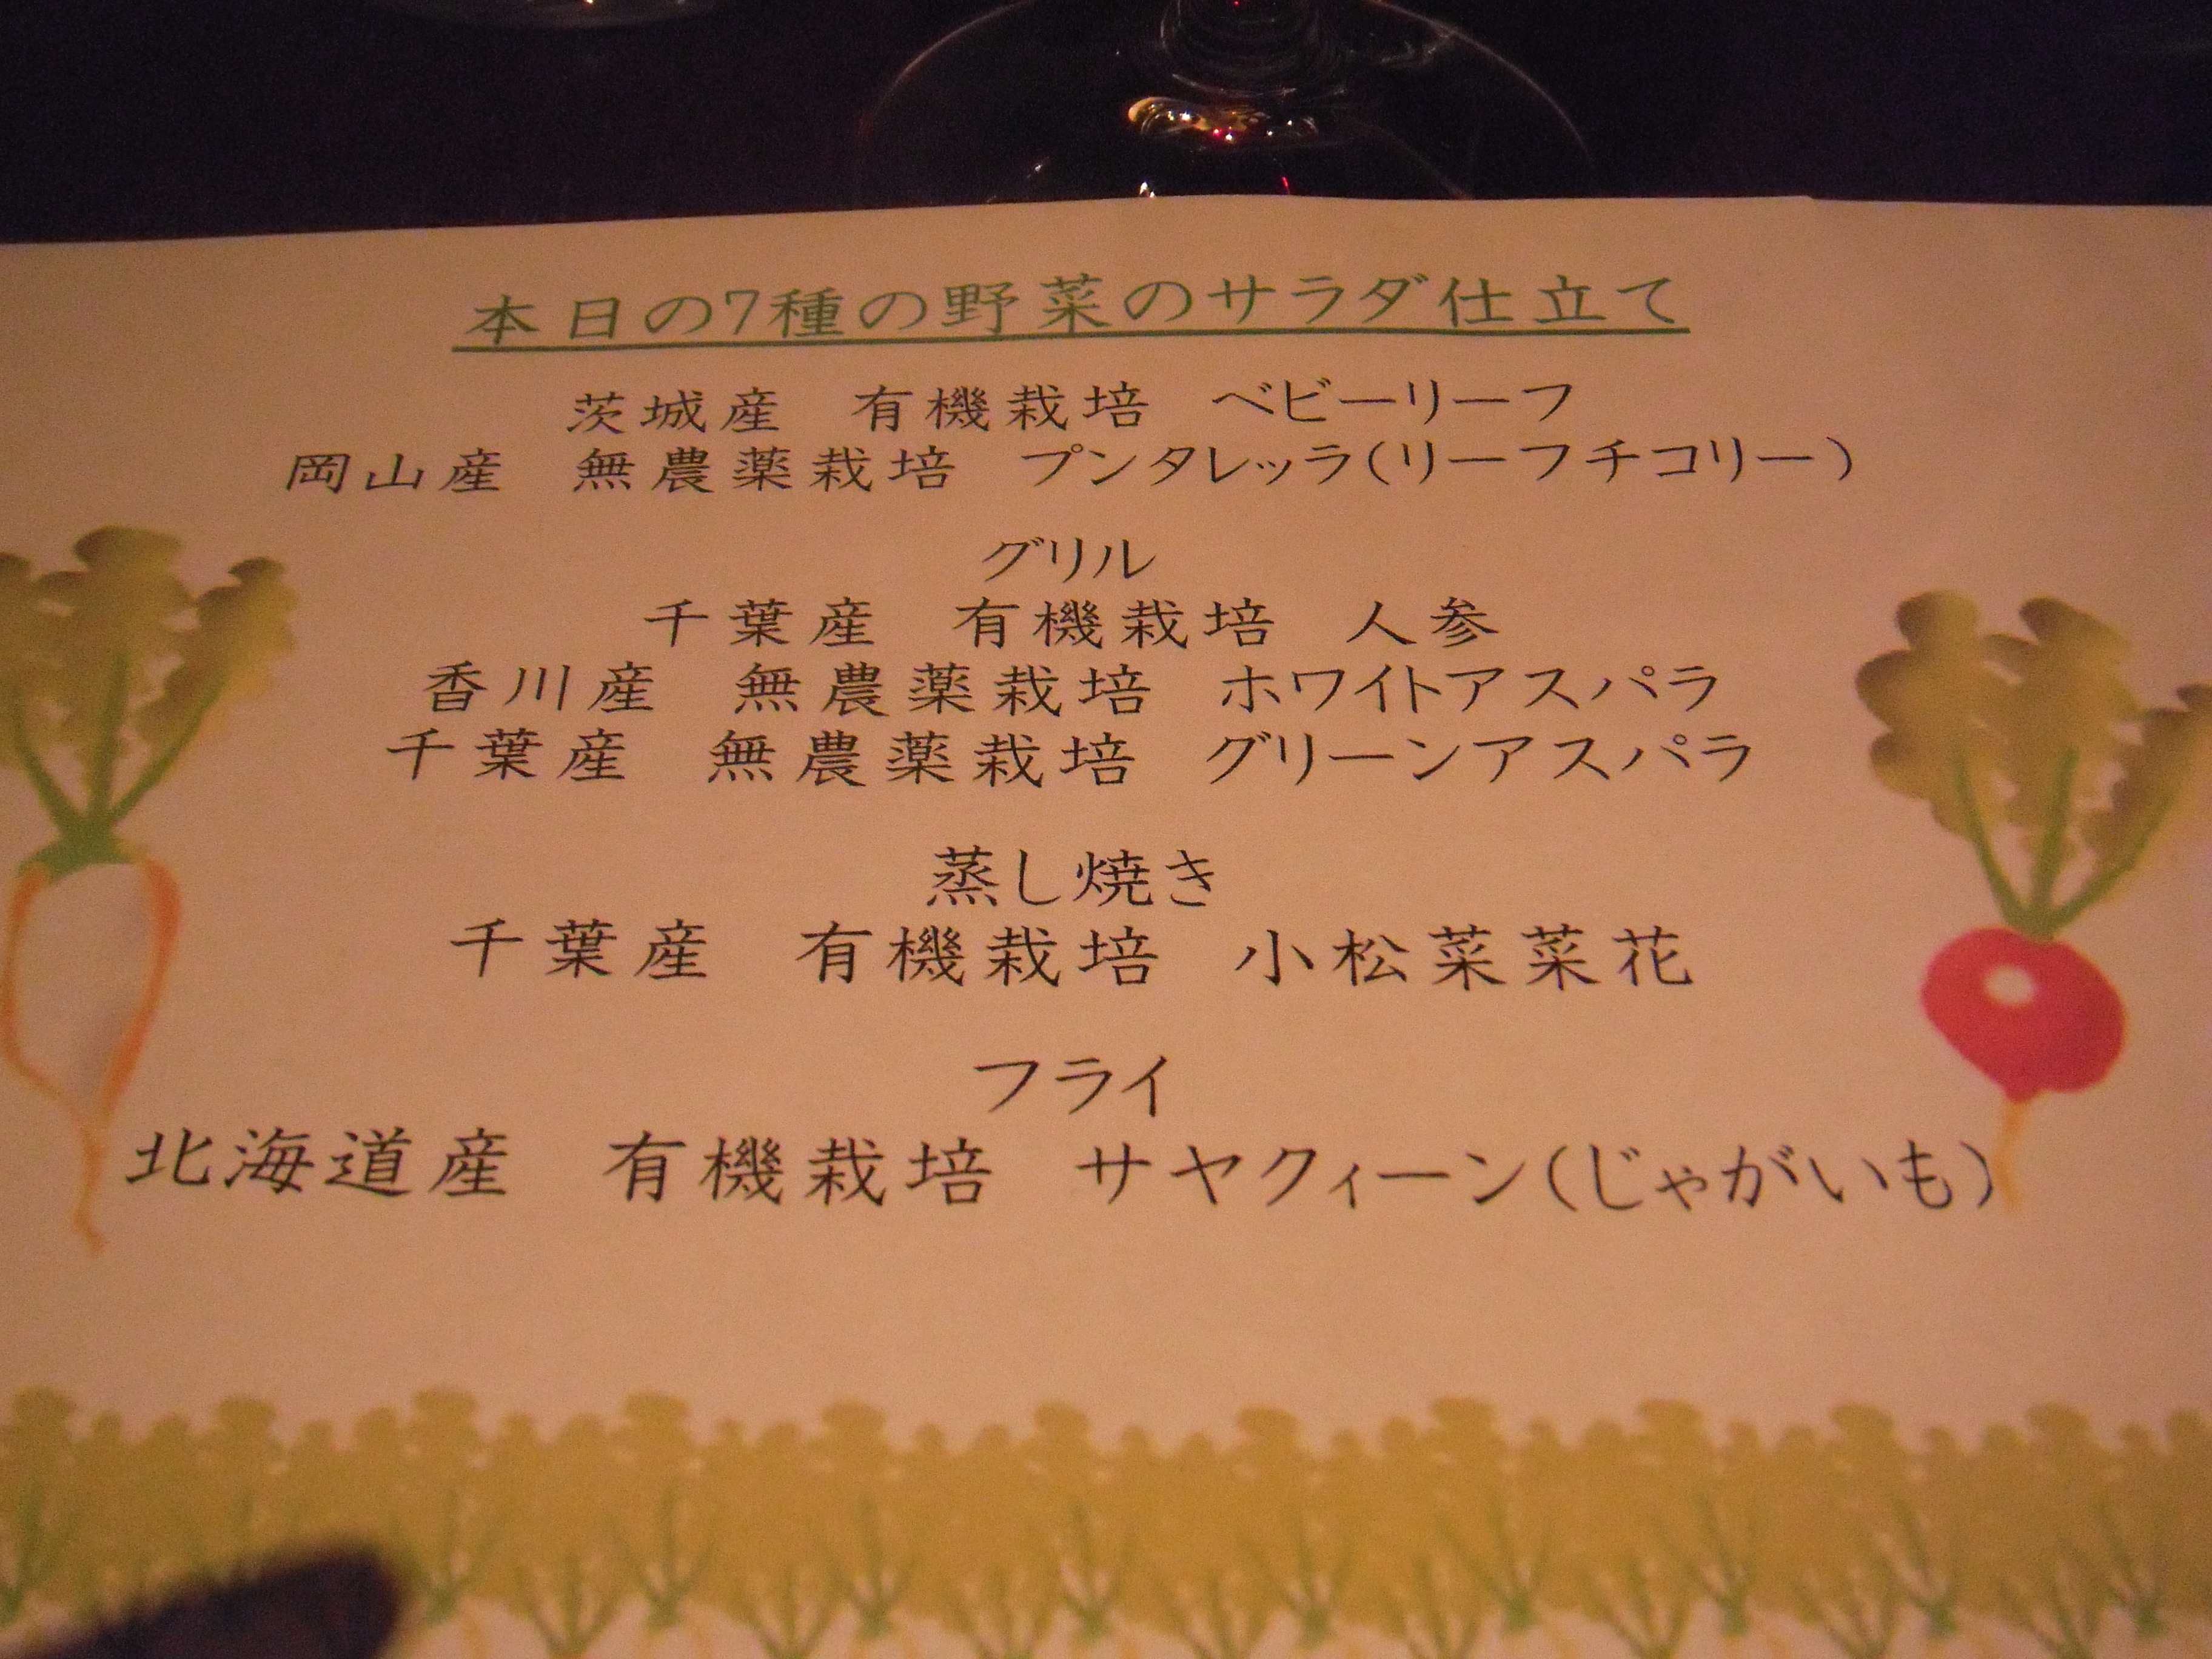 本日の7種の野菜のサラダ仕立て
茨城産　有機栽培　ベビーリーフ
岡山産　無農薬栽培　プンタレッラ(リーフチコリー)
グリル
千葉産　有機栽培　人参
香川産　無農薬栽培　ホワイトアスパラ
千葉産　無農薬栽培　グリーンアスパラ
蒸し焼き
千葉産　有機栽培　小松菜菜花
フライ
北海道産　有機栽培　サヤクィーン(じゃがいも)